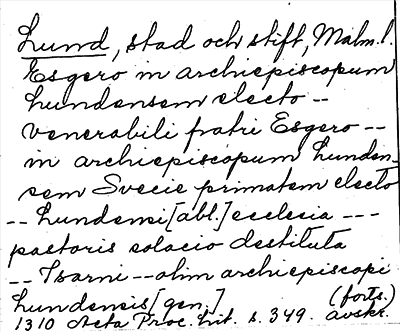 Lund, stad och stift, Malm.l.
Esgero in archiepiscopum
Lundensem electo --
venerabili fratri Esgero --
in archiepiscopum Lunden-
sem Svecie primatem electo
-- Lundensi [abl.] ecclesia ---
pastoris solacio destituta
-- Isarni -- olim archiepiscopi
Lundensis [gen.] (forts.)
1310 Acta Proc. Lit. s. 349. avskr.